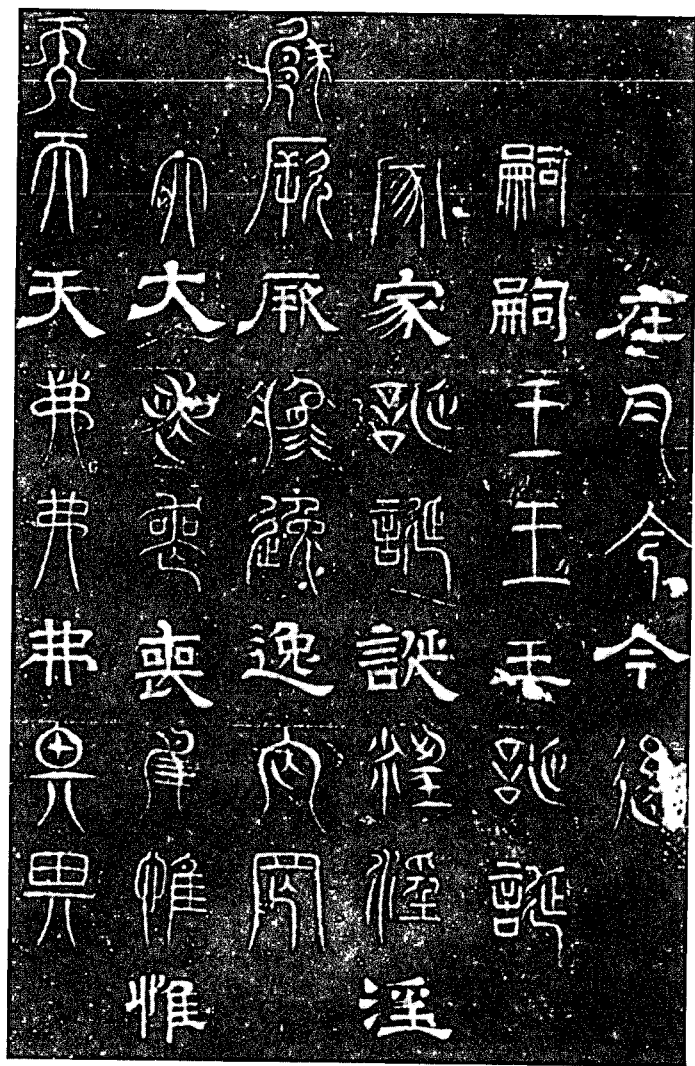 在今今今後
嗣嗣王王王誕誕
家家誕誕誕淫淫淫
厥厥厥逸逸逸罔罔
大大喪喪喪惟惟惟
天天天弗弗弗畀畀